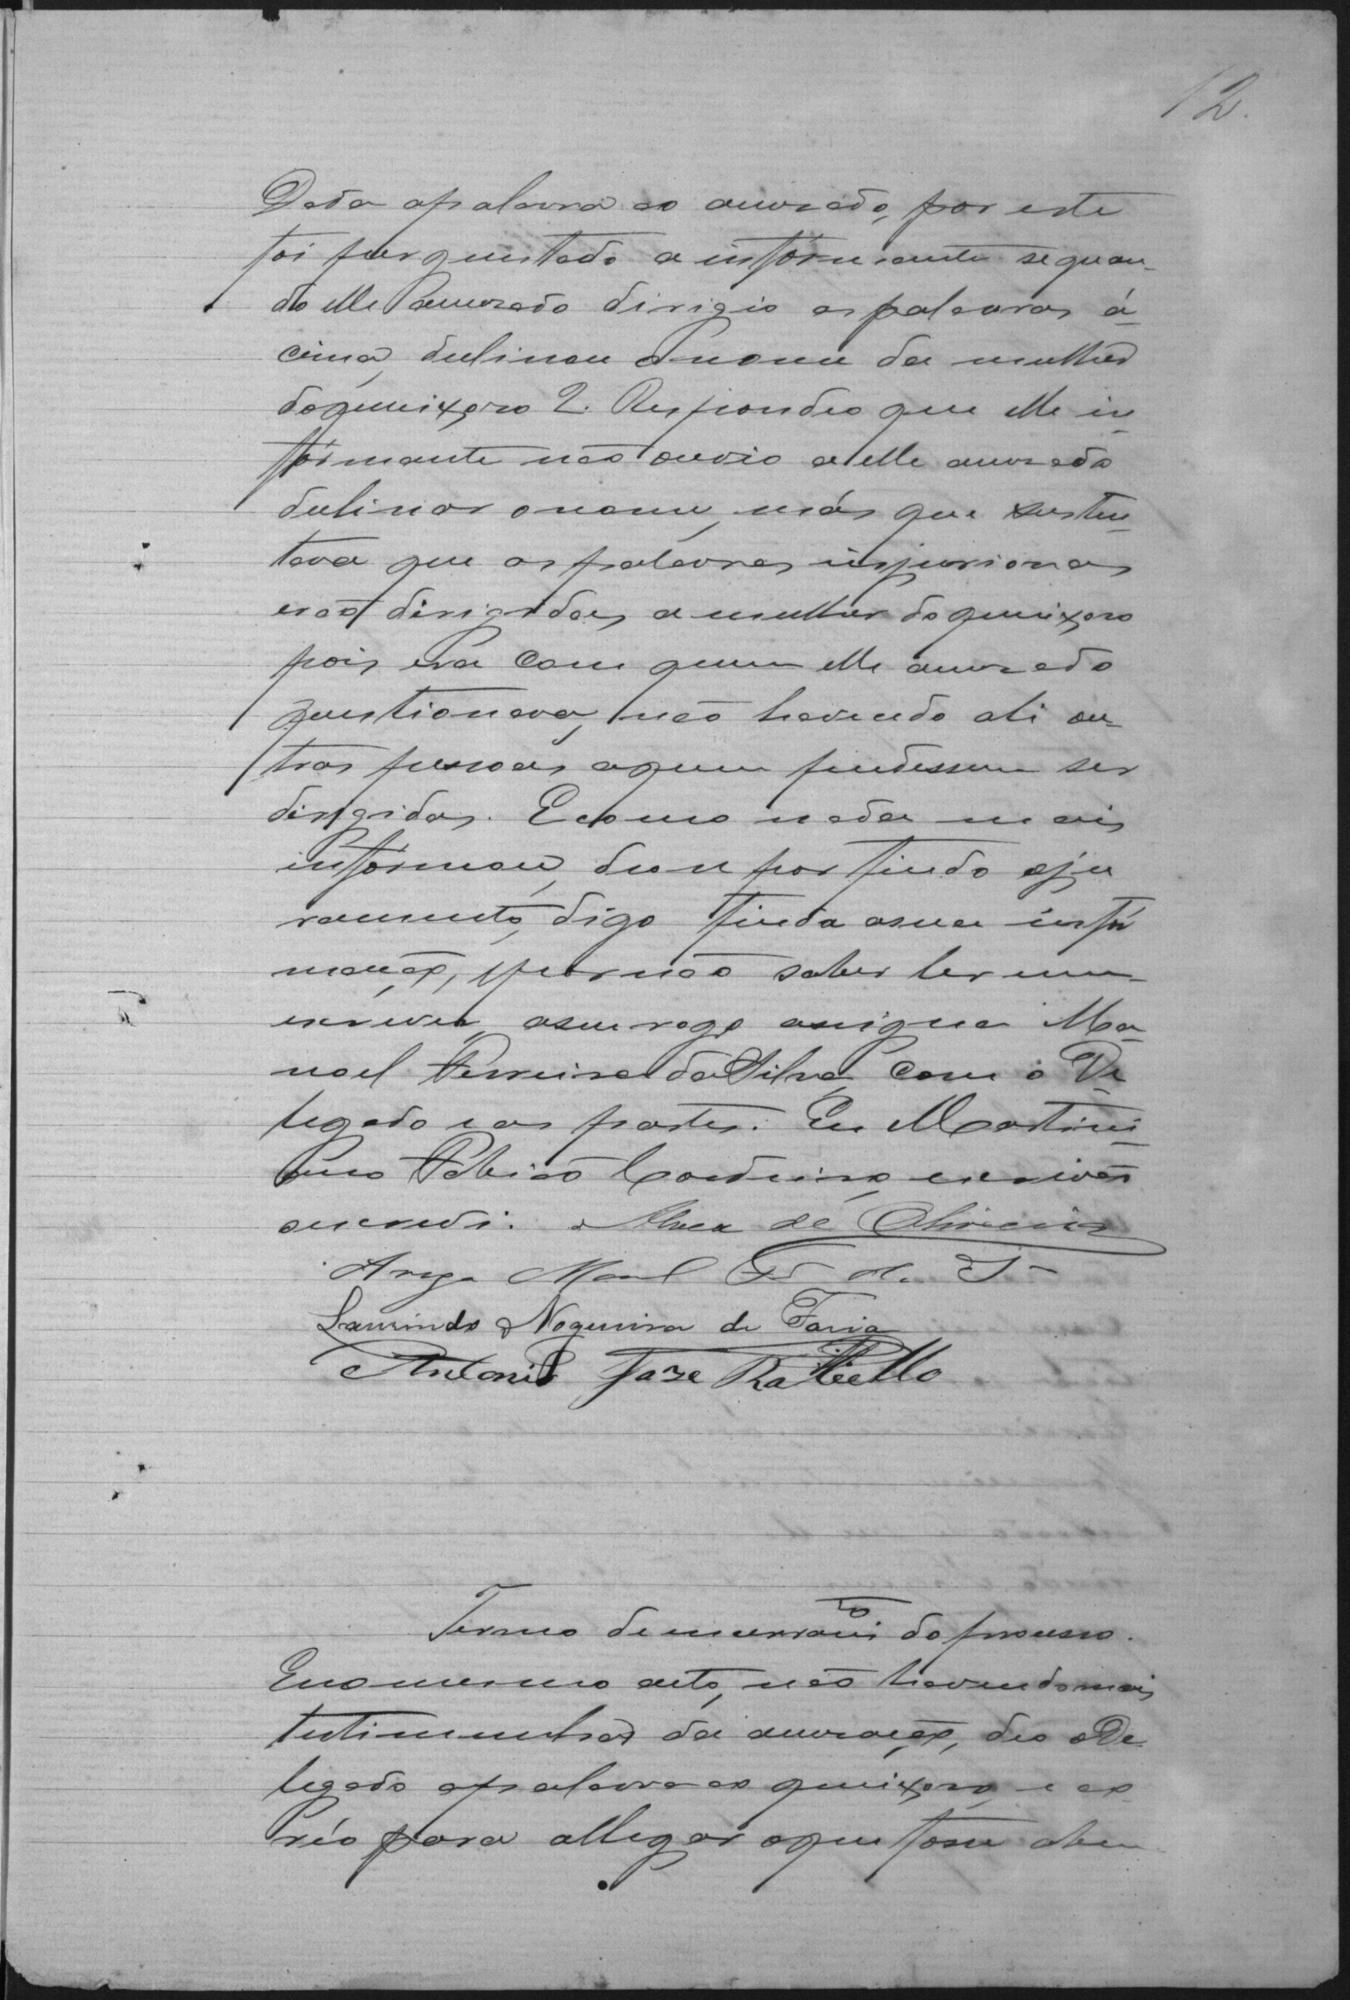 12.
Dada apalavra ao accusado, por este
foi perguntado a informante se quan-
do elle accusado dirigio as palavras á-
cima, declinou o nome da mulher
do queixoso? Respondeo que elle in-
formante não ouvio a elle accusado
declinar o nome, más que susten-
tava que as palavras injuriosas
erão dirigidas a mulher do queixoso
pois era com quem elle accusado
questionava, não havendo ali ou-
tras pessoas aquem pudessem ser
dirigidas. E como nada mais
informou, deu se por findo oju
ramento, digo finda asua infor
mação, e por não saber ler nem
escrever, aseu rogo assigna Ma-
noel Ferreira da Silva, com o De
legado e as partes. Eu Martini-
ano Cordeiro, escrivão
escrevi. de Oliveira
Arogo Manoel Fra da Sa
Laurindo Nogueira de Faria
Antonio Jose Rabello
Termo de encerramto do processo.
E no mesmo acto, não havendo mais
testimunhas da accusação, deo o De
legado apalavra ao queixoso, e ao
réo para allegar o que fosse abem